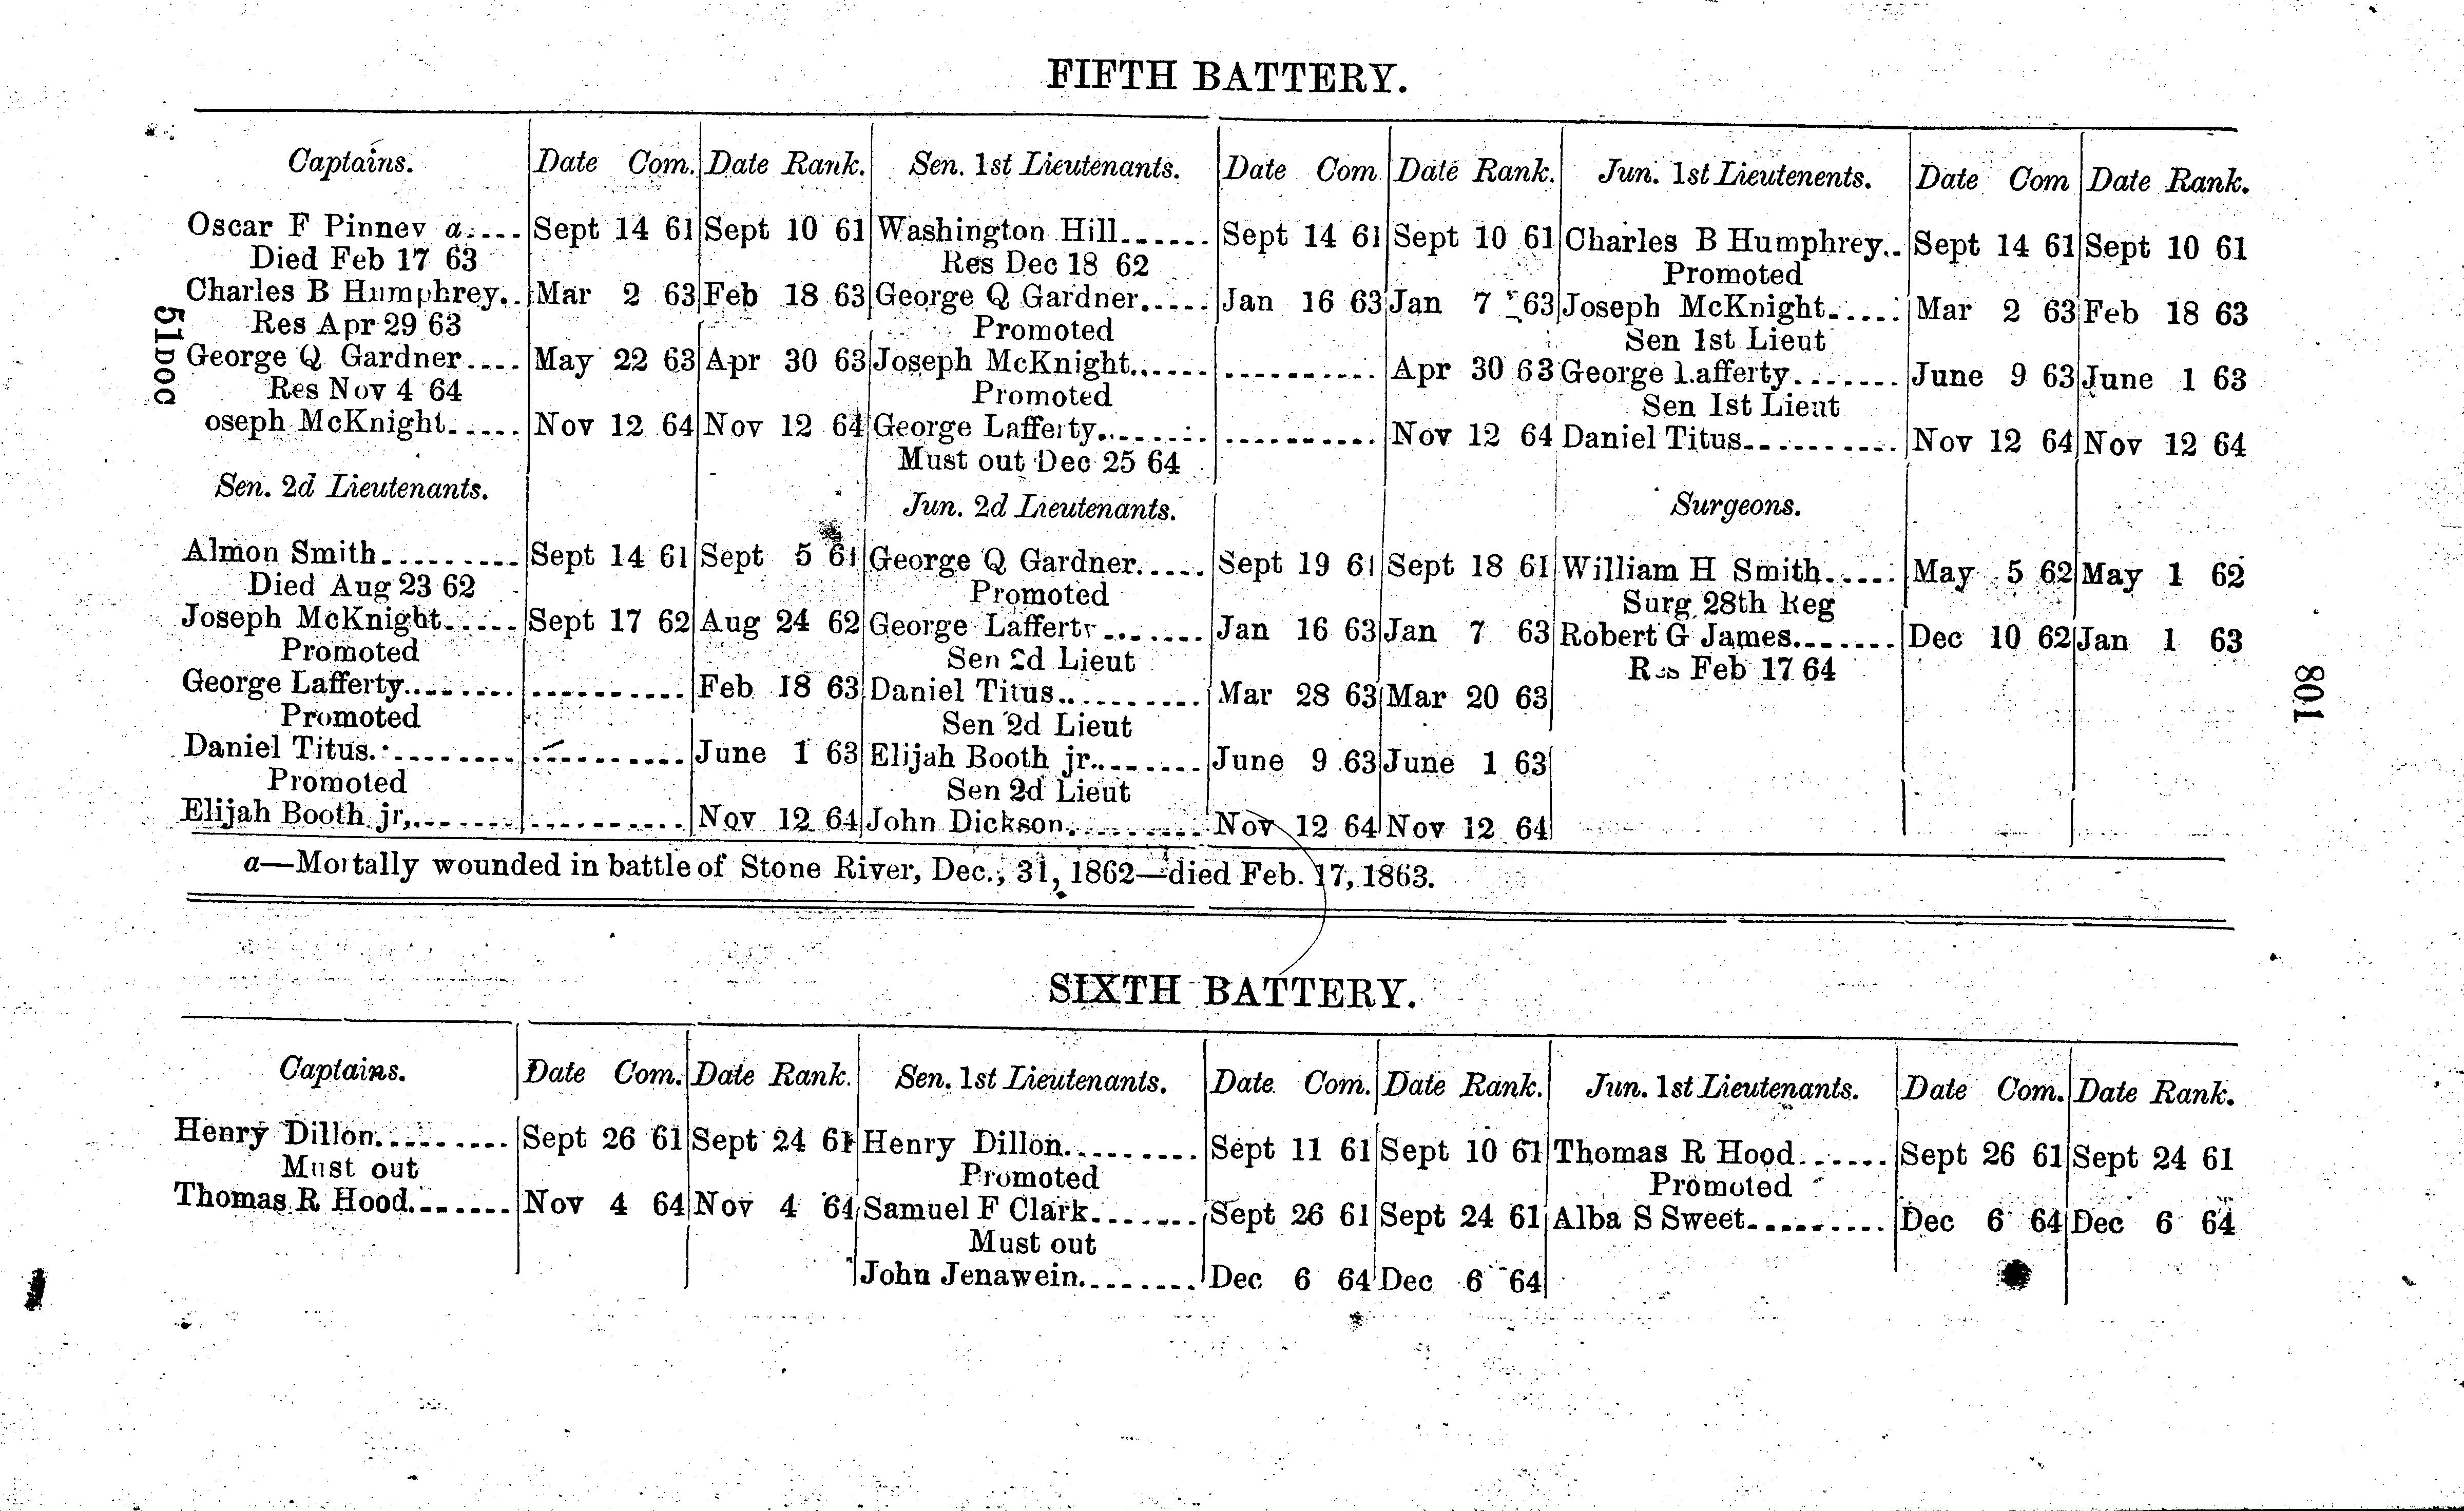 FIFTH BATTERY.
Captains. Date Com. Date Rank. Sen. 1st Lieutenants. Date Com Date Rank. Jun. 1st Lieutenents. Date Com Date Rank.
Oscar F Pinney a.... Sept 14 61 Sept 10 61 Washington Hill...... Sept 14 61 Sept 10 61 Charles B Humphrey.. Sept 14 61 Sept 10 61
Died Feb 17 63 Res Dec 18 62 Promoted
Charles B Humphrey.. Mar 2 63 Feb 18 63 George Q Gardner..... Jan 16 63 Jan 7 63 Joseph McKnight..... Mar 2 63 Feb 18 63
Res Apr 29 63 Promoted Sen 1st Lieut
George Q Gardner.... May 22 63 Apr 30 63 Joseph McKnight...... .......... Apr 30 63 George Lafferty....... June 9 63 June 1 63
Res Nov 4 64 Promoted Sen 1st Lieut
oseph McKnight..... Nov 12 64 Nov 12 64 George Lafferty....... .......... Nov 12 64 Daniel Titus.......... Nov 12 64 Nov 12 64
Must out Dec 25 64
Sen. 2d Lieutenants. Jun. 2d Lieutenants. Surgeons.
Almon Smith......... Sept 14 61 Sept 5 61 George Q Gardner..... Sept 19 61 Sept 18 61 William H Smith..... May 5 62 May 1 62
Died Aug 23 62 Promoted Surg 28th Reg
Joseph McKnight..... Sept 17 62 Aug 24 62 George Lafferty....... Jan 16 63 Jan 7 63 Robert G James....... Dec 10 62 Jan 1 63
Promoted Sen 2d Lieut Res Feb 17 64
George Lafferty........ .......... Feb 18 63 Daniel Titus.......... Mar 28 63 Mar 20 63
Promoted Sen 2d Lieut
Daniel Titus.......... .......... June 1 63 Elijah Booth jr........ June 9 63 June 1 63
Promoted Sen 2d Lieut
Elijah Booth jr,....... .......... Nov 12 64 John Dickson.......... Nov 12 64 Nov 12 64
a—Mortally wounded in battle of Stone River, Dec., 31, 1862—died Feb. 17, 1863.
51DOC
801
SIXTH BATTERY.
Captains. Date Com. Date Rank. Sen. 1st Lieutenants. Date Com. Date Rank. Jun. 1st Lieutenants. Date Com. Date Rank.
Henry Dillon.......... Sept 26 61 Sept 24 61 Henry Dillon.......... Sept 11 61 Sept 10 61 Thomas R Hood...... Sept 26 61 Sept 24 61
Must out Promoted Promoted
Thomas R Hood....... Nov 4 64 Nov 4 64 Samuel F Clark....... Sept 26 61 Sept 24 61 Alba S Sweet.......... Dec 6 64 Dec 6 64
Must out
John Jenawein......... Dec 6 64 Dec 6 64